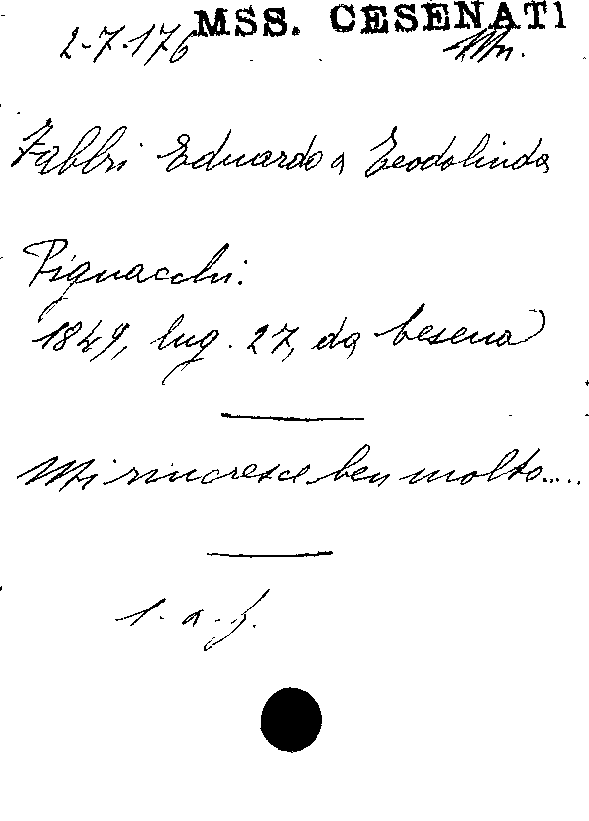 MSS. CESENATI
2-7-176 Mn.
Fabbri Eduardo a Teodolinda
Pignacchi.
1849, lug. 27, da Cesena
Mi rincresce ben molto.....
l. a. f.